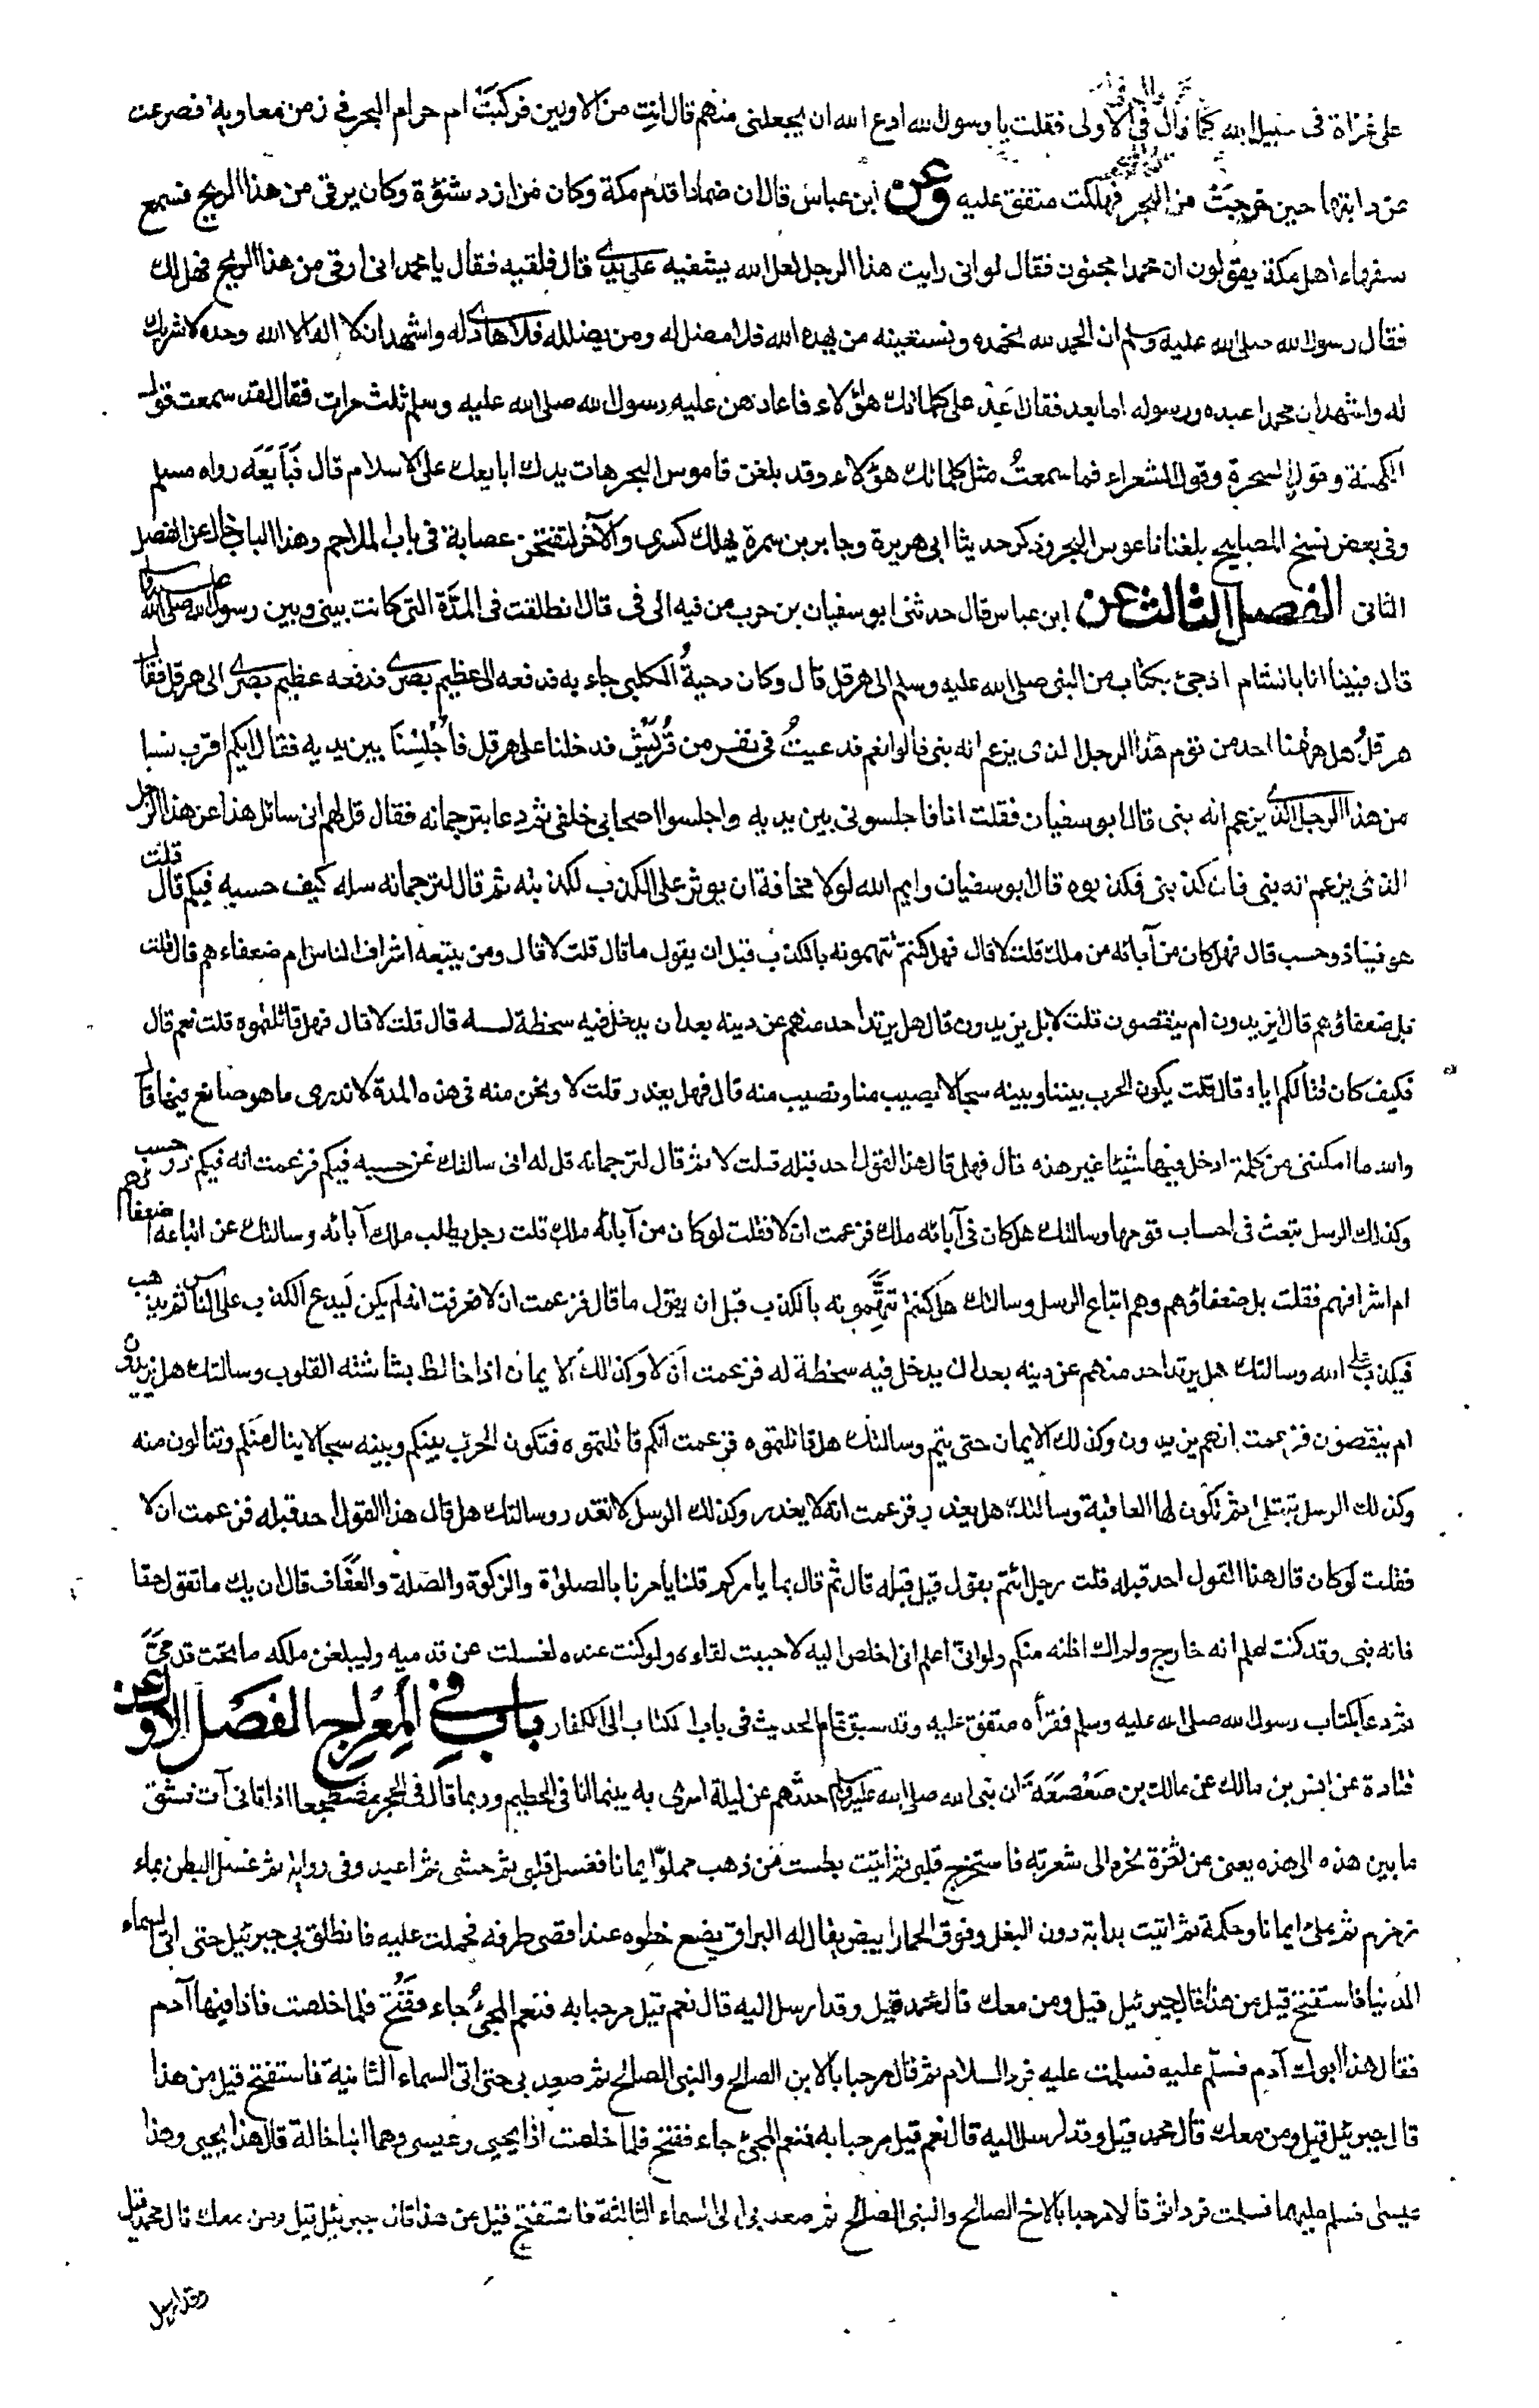 على غزاة فى سبيل الله كما قال فى الاولى فقلت يا رسول الله ادع الله ان يجعلنى منهم قال انتِ من الاولين فركبَتْ ام حرام البحر فى زمن معاوية فصرعت
عن دابتها حين خرجَتْ من البحر فهلكت متفق عليه وعن ابن عباس قال ان ضمادا قدم مكة وكان من ازد شنؤة وكان يرقى من هذا الريح فسمع
سفهاء اهل مكة يقولون ان محمدا مجنون فقال لو انى رايت هذا الرجل لعل الله يشفيه على يدى قال فلقيه فقال يا محمد انى ارقى من هذا الريح فهل لك
فقال رسول الله صلى الله عليه وسلم ان الحمد لله نحمده ونستعينه من يهده الله فلا مضل له ومن يضلله فلا هادى له واشهد ان لا اله الا الله وحده لا شريك
له واشهد ان محمدا عبده ورسوله اما بعد فقال اَعِدْ على كلماتك هؤلاء فاعادهن عليه رسول الله صلى الله عليه وسلم ثلث مرات فقال لقد سمعت قول
الكهنة وقول السحرة وقول الشعراء فما سمعتُ مثل كلماتك هؤلاء وقد بلغن قاموس البحر هات يدك ابايعك على الاسلام قال فَبَايَعَه رواه مسلم
وفى بعض نسخ المصابيح بلغنا ناعوس البحر وذكر حديثا ابى هريرة وجابر بن سمرة يهلك كسرى والآخر لتفتحن عصابة فى باب الملاحم وهذا الباب خال عن الفصل
الثانى الفصل الثالث عن ابن عباس قال حدثنى ابو سفيان بن حرب من فيه الى فى قال انطلقت فى المدَّة التى كانت بينى وبين رسول الله صلى الله عليه وسلم
قال فبينا انا بالشام اذ جئ بكتاب من النبى صلى الله عليه وسلم الى هرقل قال وكان دحيةُ الكلبى جاء به فدفعه الى عظيم بصرى فدفعه عظيم بصرى الى هرقل فقال
هرقلُ هل ههنا احد من قوم هذا الرجل الذى يزعم انه نبى قالوا نعم فدعيتُ فى نفر من قُرَيْشٍ فدخلنا على هرقل فاُجْلِسْنَا بين يديه فقال ايكم اقرب نسبا
من هذا الرجل الذى يزعم انه نبى قال ابو سفيان فقلت انا فاجلسونى بين يديه واجلسوا اصحابى خلفى ثم دعا بترجمانه فقال قل لهم انى سائل هذا عن هذا الرجل
الذى يزعم انه نبى فان كذبنى فكذبوه قال ابو سفيان وايم الله لولا مخافة ان يوثر على الكذب لكذبته ثم قال لترجمانه سله كيف حسبه فيكم قال قلت
هو فينا ذو حسب قال فهل كان من آبائه من ملك قلت لا قال فهل كنتم تتهمونه بالكذب قبل ان يقول ما قال قلت لا قال ومن يتبعه اشراف الناس ام ضعفاءهم قال قلت
بل ضعفاؤهم قال ايزيدون ام ينقصون قلت لا بل يزيدون قال هل يرتد احد منهم عن دينه بعد ان يدخل فيه سخطة لـه قال قلت لا قال فهل قاتلتموه قلت نعم قال
فكيف كان قتالكم اياه قال قلت يكون الحرب بيننا وبينه سجالا يصيب منا ونصيب منه قال فهل يغدر قلت لا ونحن منه فى هذه المدة لا ندرى ما هو صانع فيها قال
والله ما امكننى من كلمة ادخل فيها شيئا غير هذه قال فهل قال هذا القول احد قبله قلت لا ثم قال لترجمانه قل له انى سالتك عن حسبه فيكم فزعمت انه فيكم ذو حسب
وكذلك الرسل تبعث فى احساب قومها وسالتك هل كان فى آبائه ملك فزعمت ان لا فقلت لو كان من آبائه ملك قلت رجل يطلب ملك آبائه وسالتك عن اتباعه اضعفاؤهم
ام اشرافهم فقلت بل ضعفاؤهم وهم اتباع الرسل وسالتك هل كنتم تَتَّهِمُونه بالكذب قبل ان يقول ما قال فزعمت ان لا فعرفت انه لم يكن لَيدع الكذب على الناس ثم يذهب
فيكذب على الله وسالتك هل يرتد احد منهم عن دينه بعد ان يدخل فيه سخطة له فزعمت اَنْ لا وكذلك الايمان اذا خالط بشاشته القلوب وسالتك هل يزيدون
ام ينقصون فزعمت انهم يزيدون وكذلك الايمان حتى يتم وسالتك هل قاتلتموه فزعمت انكم قاتلتموه فتكون الحرب بينكم وبينه سجالا ينال منكم وتنالون منه
وكذلك الرسل تبتلى ثم تكون لها العاقبة وسالتك هل يغدر فزعمت انه لا يغدر وكذلك الرسل لا تغدر وسالتك هل قال هذا القول احد قبله فزعمت ان لا
فقلت لو كان قال هذا القول احد قبله قلت رجل ائتم بقول قيل قبله قال ثم قال بما يامركم قلنا يامرنا بالصلوة والزكوة والصلة والعَفَاف قال ان يك ما تقول حقا
فانه نبى وقد كنت اعلم انه خارج ولم اك اظنه منكم ولو انى اعلم انى اخلص اليه لاحببت لقاءه ولو كنت عنده لغسلت عن قدميه وليبلغن ملكه ما تحت قدمىَّ
ثم دعا بكتاب رسول الله صلى الله عليه وسلم فقرأه متفق عليه وقد سبق تمام الحديث فى باب الكتاب الى الكفار باب فى المِعْراج الفصل الاول عن
قتادة عن انس بن مالك عن مالك بن صَعْصَعَة ان نبى الله صلى الله عليه وسلم حدثهم عن ليلة اسرى به بينما انا فى الحطيم وربما قال فى الحجر مضطجعا اذ اتانى آت فشق
ما بين هذه الى هذه يعنى من ثغرة نحره الى شعرته فاستخرج قلبى ثم اتيت بطست من ذهب مملوّ ايمانا فغسل قلبى ثم حشى ثم اعيد وفى رواية ثم غسل البطن بماء
زمزم ثم ملئ ايمانا وحكمة ثم اتيت بدابة دون البغل وفوق الحمار ابيض يقال له البراق يضع خطوه عند اقصى طرفه فحملت عليه فانطلق بى جبرئيل حتى اتى السماء
الدنيا فاستفتح قيل من هذا قال جبرئيل قيل ومن معك قال محمد قيل وقد ارسل اليه قال نعم قيل مرحبا به فنعم المجئُ جاء ففُتح فلما خلصت فاذا فيها آدم
فقال هذا ابوك آدم فسلّم عليه فسلمت عليه فرد السلام ثم قال مرحبا بالابن الصالح والنبى الصالح ثم صعد بى حتى اتى السماء الثانية فاستفتح قيل من هذا
قال جبرئيل قيل ومن معك قال محمد قيل وقد ارسل اليه قال نعم قيل مرحبا به فنعم المجئ جاء ففتح فلما خلصت اذا يحيى وعيسى وهما ابنا خالة قال هذا يحيى وهذا
عيسى فسلم عليهما فسلمت فردا ثم قالا مرحبا بالاخ الصالح والنبى الصالح ثم صعد بى الى السماء الثالثة فاستفتح قيل من هذا قال جبرئيل قيل ومن معك قال محمد قيل
وقد ارسل